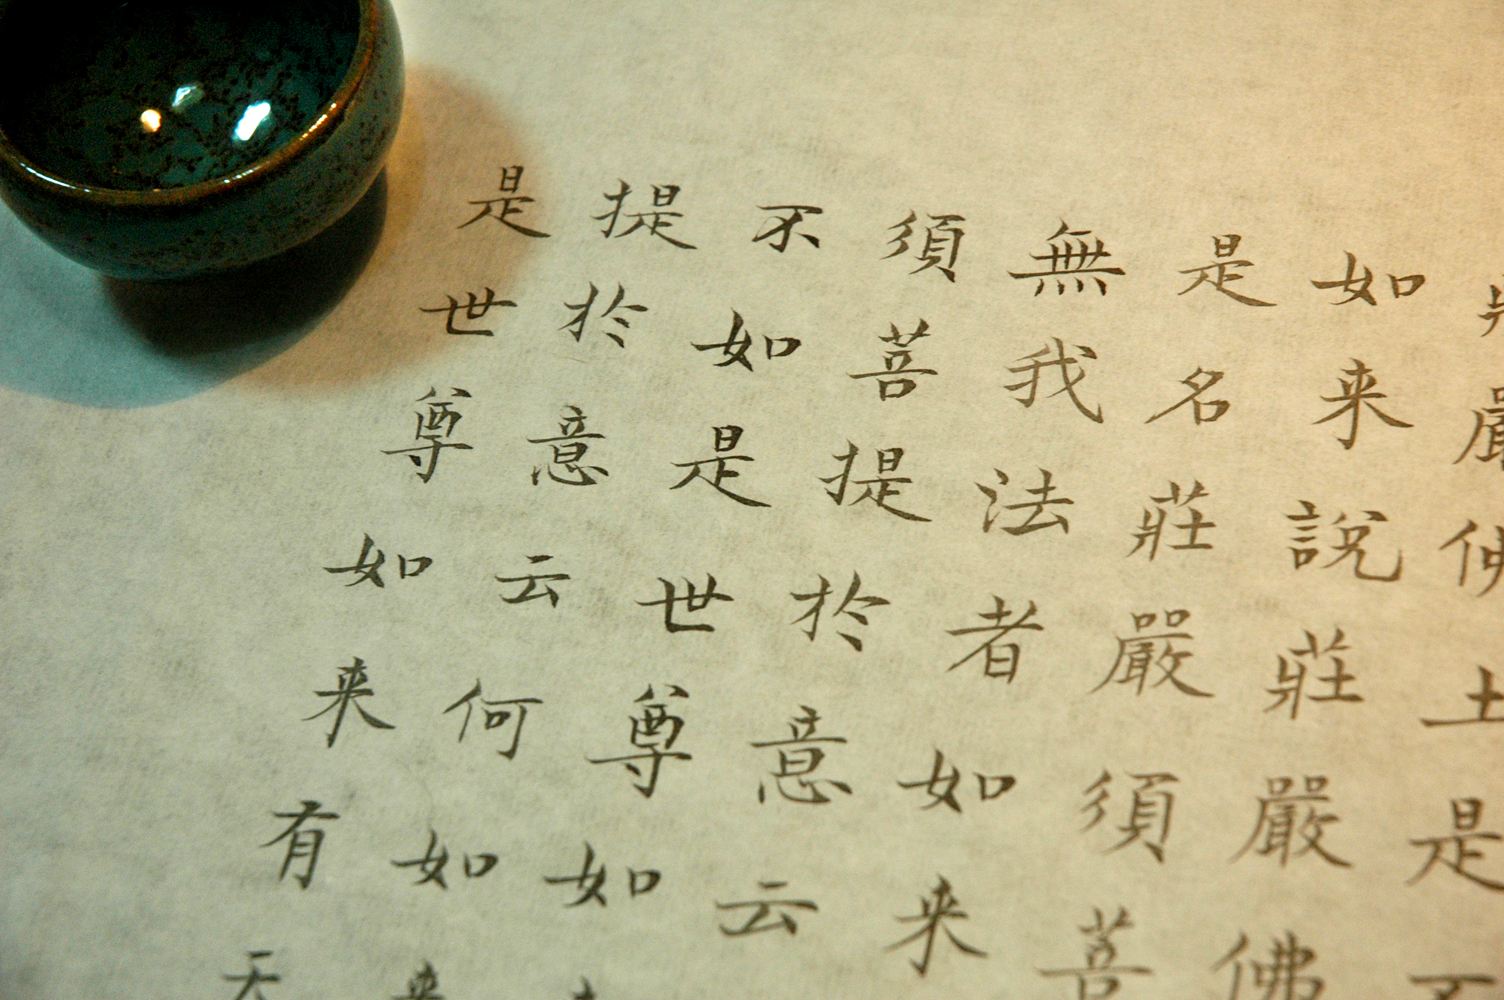 嚴佛土是不
如来說莊嚴佛
是名莊嚴須菩
無我法者如来
須菩提於意云
不如是世尊如
提於意云何如来
是世尊如来有天